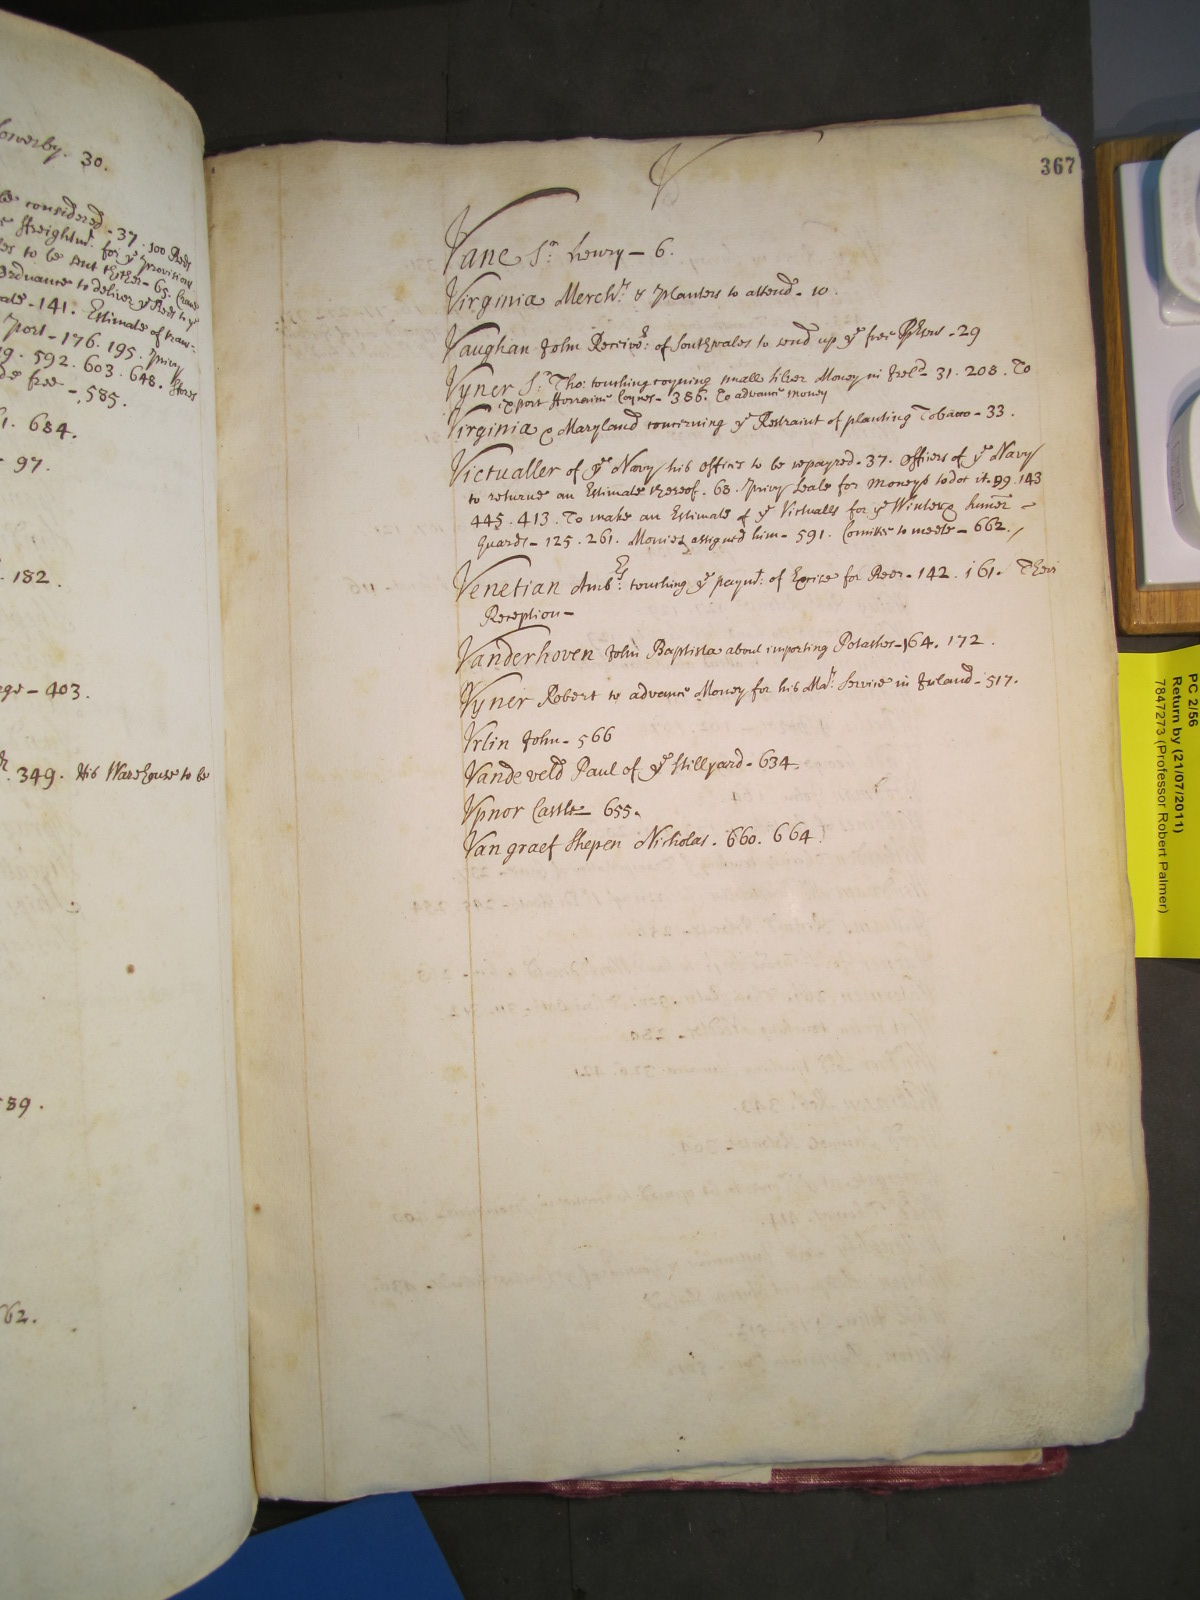 owerby. 30.
considered - 37. 100 Beds
Streightnd: for ye provision
to be sent thither - 65.
Ordnance to deliver ye Beds to ye
- 141. Estimate of
Port - 176. 195. privy
592. 603. 648. Stores
free - 585.
684.
- 97.
182.
- 403.
349. His Warehouse to be
589.
662.
367
V
Vane Sr. Henry - 6.
Virginia Mercht: & Planters to attend - 10.
Vaughan John Receivor: of Southwales to send up ye free - 29
Vyner Sr. Tho: touching coyning small silver Money in Ireld - 31. 208. To
export fforraine Coynes - 386. To advance money
Virginia & Maryland concerning ye Restraint of planting Tobacco - 33.
Victualler of ye Navy his offices to be repayred - 37. officers of ye Navy
to returne an Estimate thereof - 68. Privy Seale for moneys to doe it. 99. 143
445. 413. To make an Estimate of ye Victualls for ye Winter & Sumer
Guards - 125. 261. Monies assigned him - 591. Comittee to meete - 662.
Venetian Ambrs: touching ye paymt: of Excise for Beer - 142. 161. Their
Reception -
Vanderhoven John Baptista about importing Potashes - 164. 172.
Vyner Robert to advance Money for his Mats: Service in Ireland - 517.
Vrlin John - 566
Vandeveld Paul of ye Stillyard - 634.
Vpnor Castle - 655.
Van graef Shepen Nicholas. 660. 664.
PC 2/56
Return by (21/07/2011)
7847273 (Professor Robert Palmer)